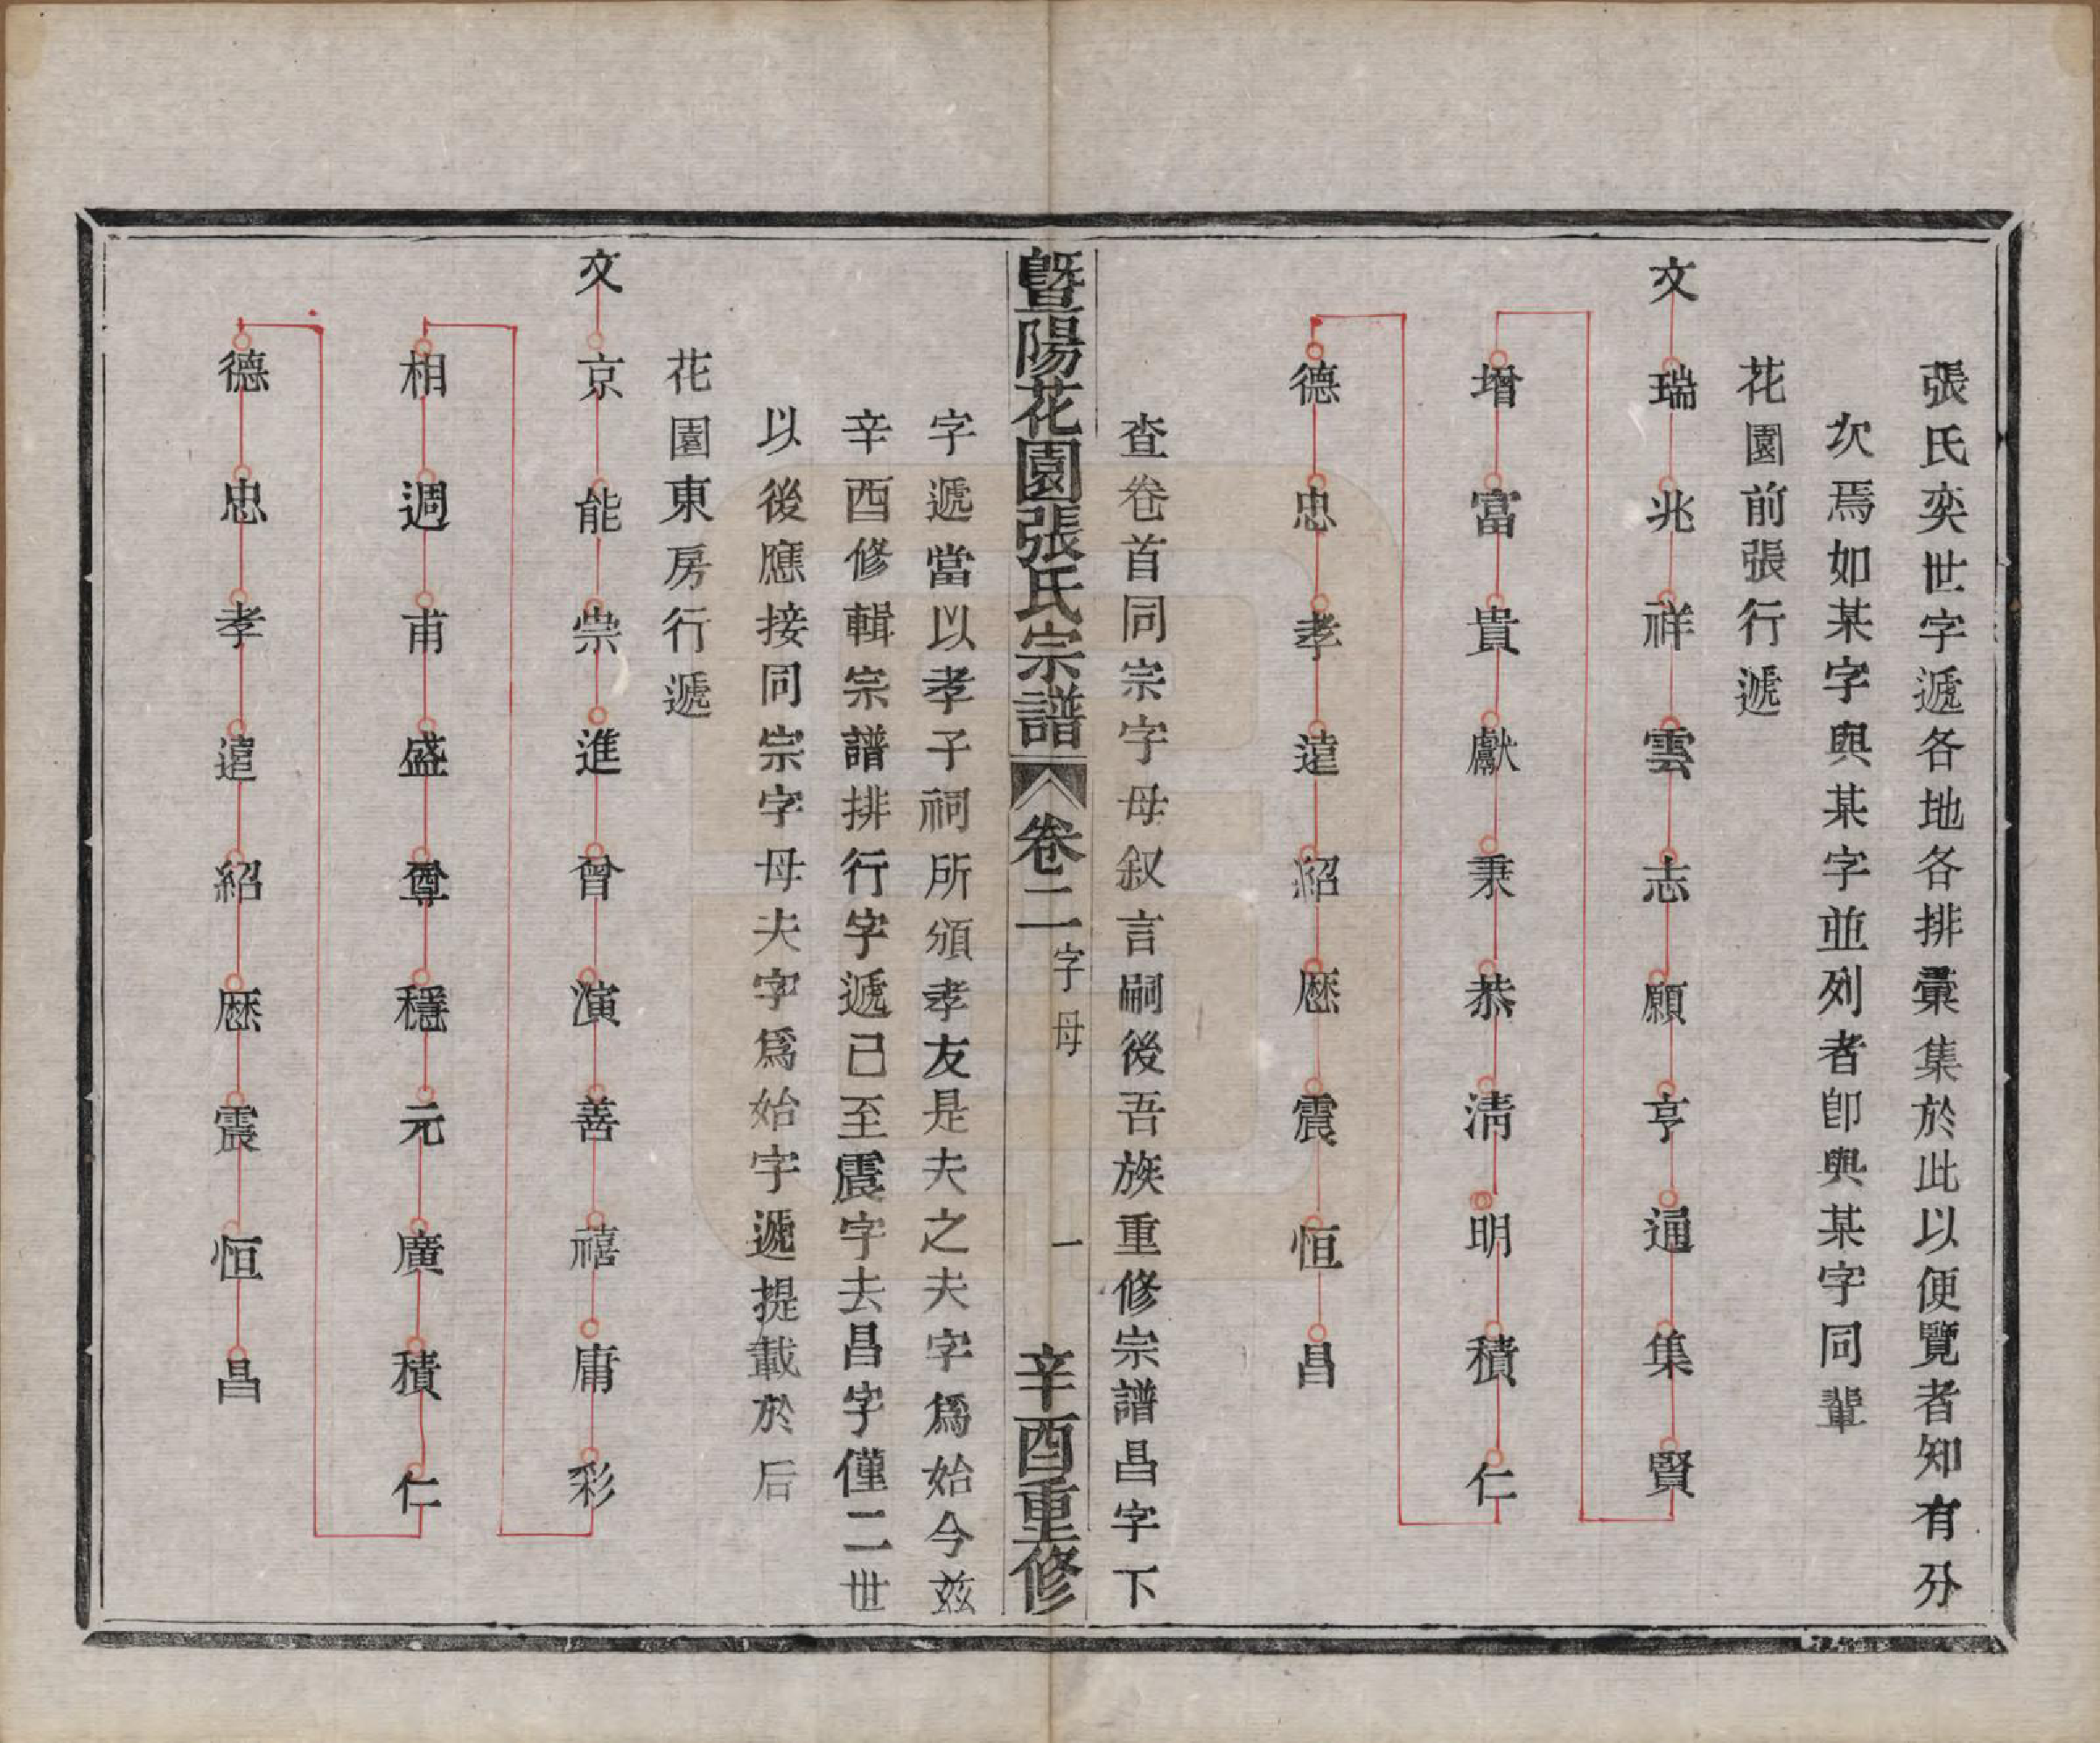 張氏奕世字遞各地各排彙集於此以便覽者知有分
次焉如某字與某字並列者卽與某字同輩
花園前張行遞
文瑞兆祥雲志願亨通集賢
增富貴獻秉恭清明積仁
德忠孝遠紹歷震恒昌
查卷首同宗字母叙言嗣後吾族重修宗譜昌字下
暨陽花園張氏宗譜 卷二 字母 一 辛酉重修
字遞當以孝子祠所頒孝友是夫之夫字爲始今玆
辛酉修輯宗譜排行字遞已至震字去昌字僅二世
以後應接同宗字母夫字爲始字遞提載於后
花園東房行遞
文京能崇進曾演善禧庸彩
相週甫盛尊穩元廣積仁
德忠孝遠紹歷震恒昌